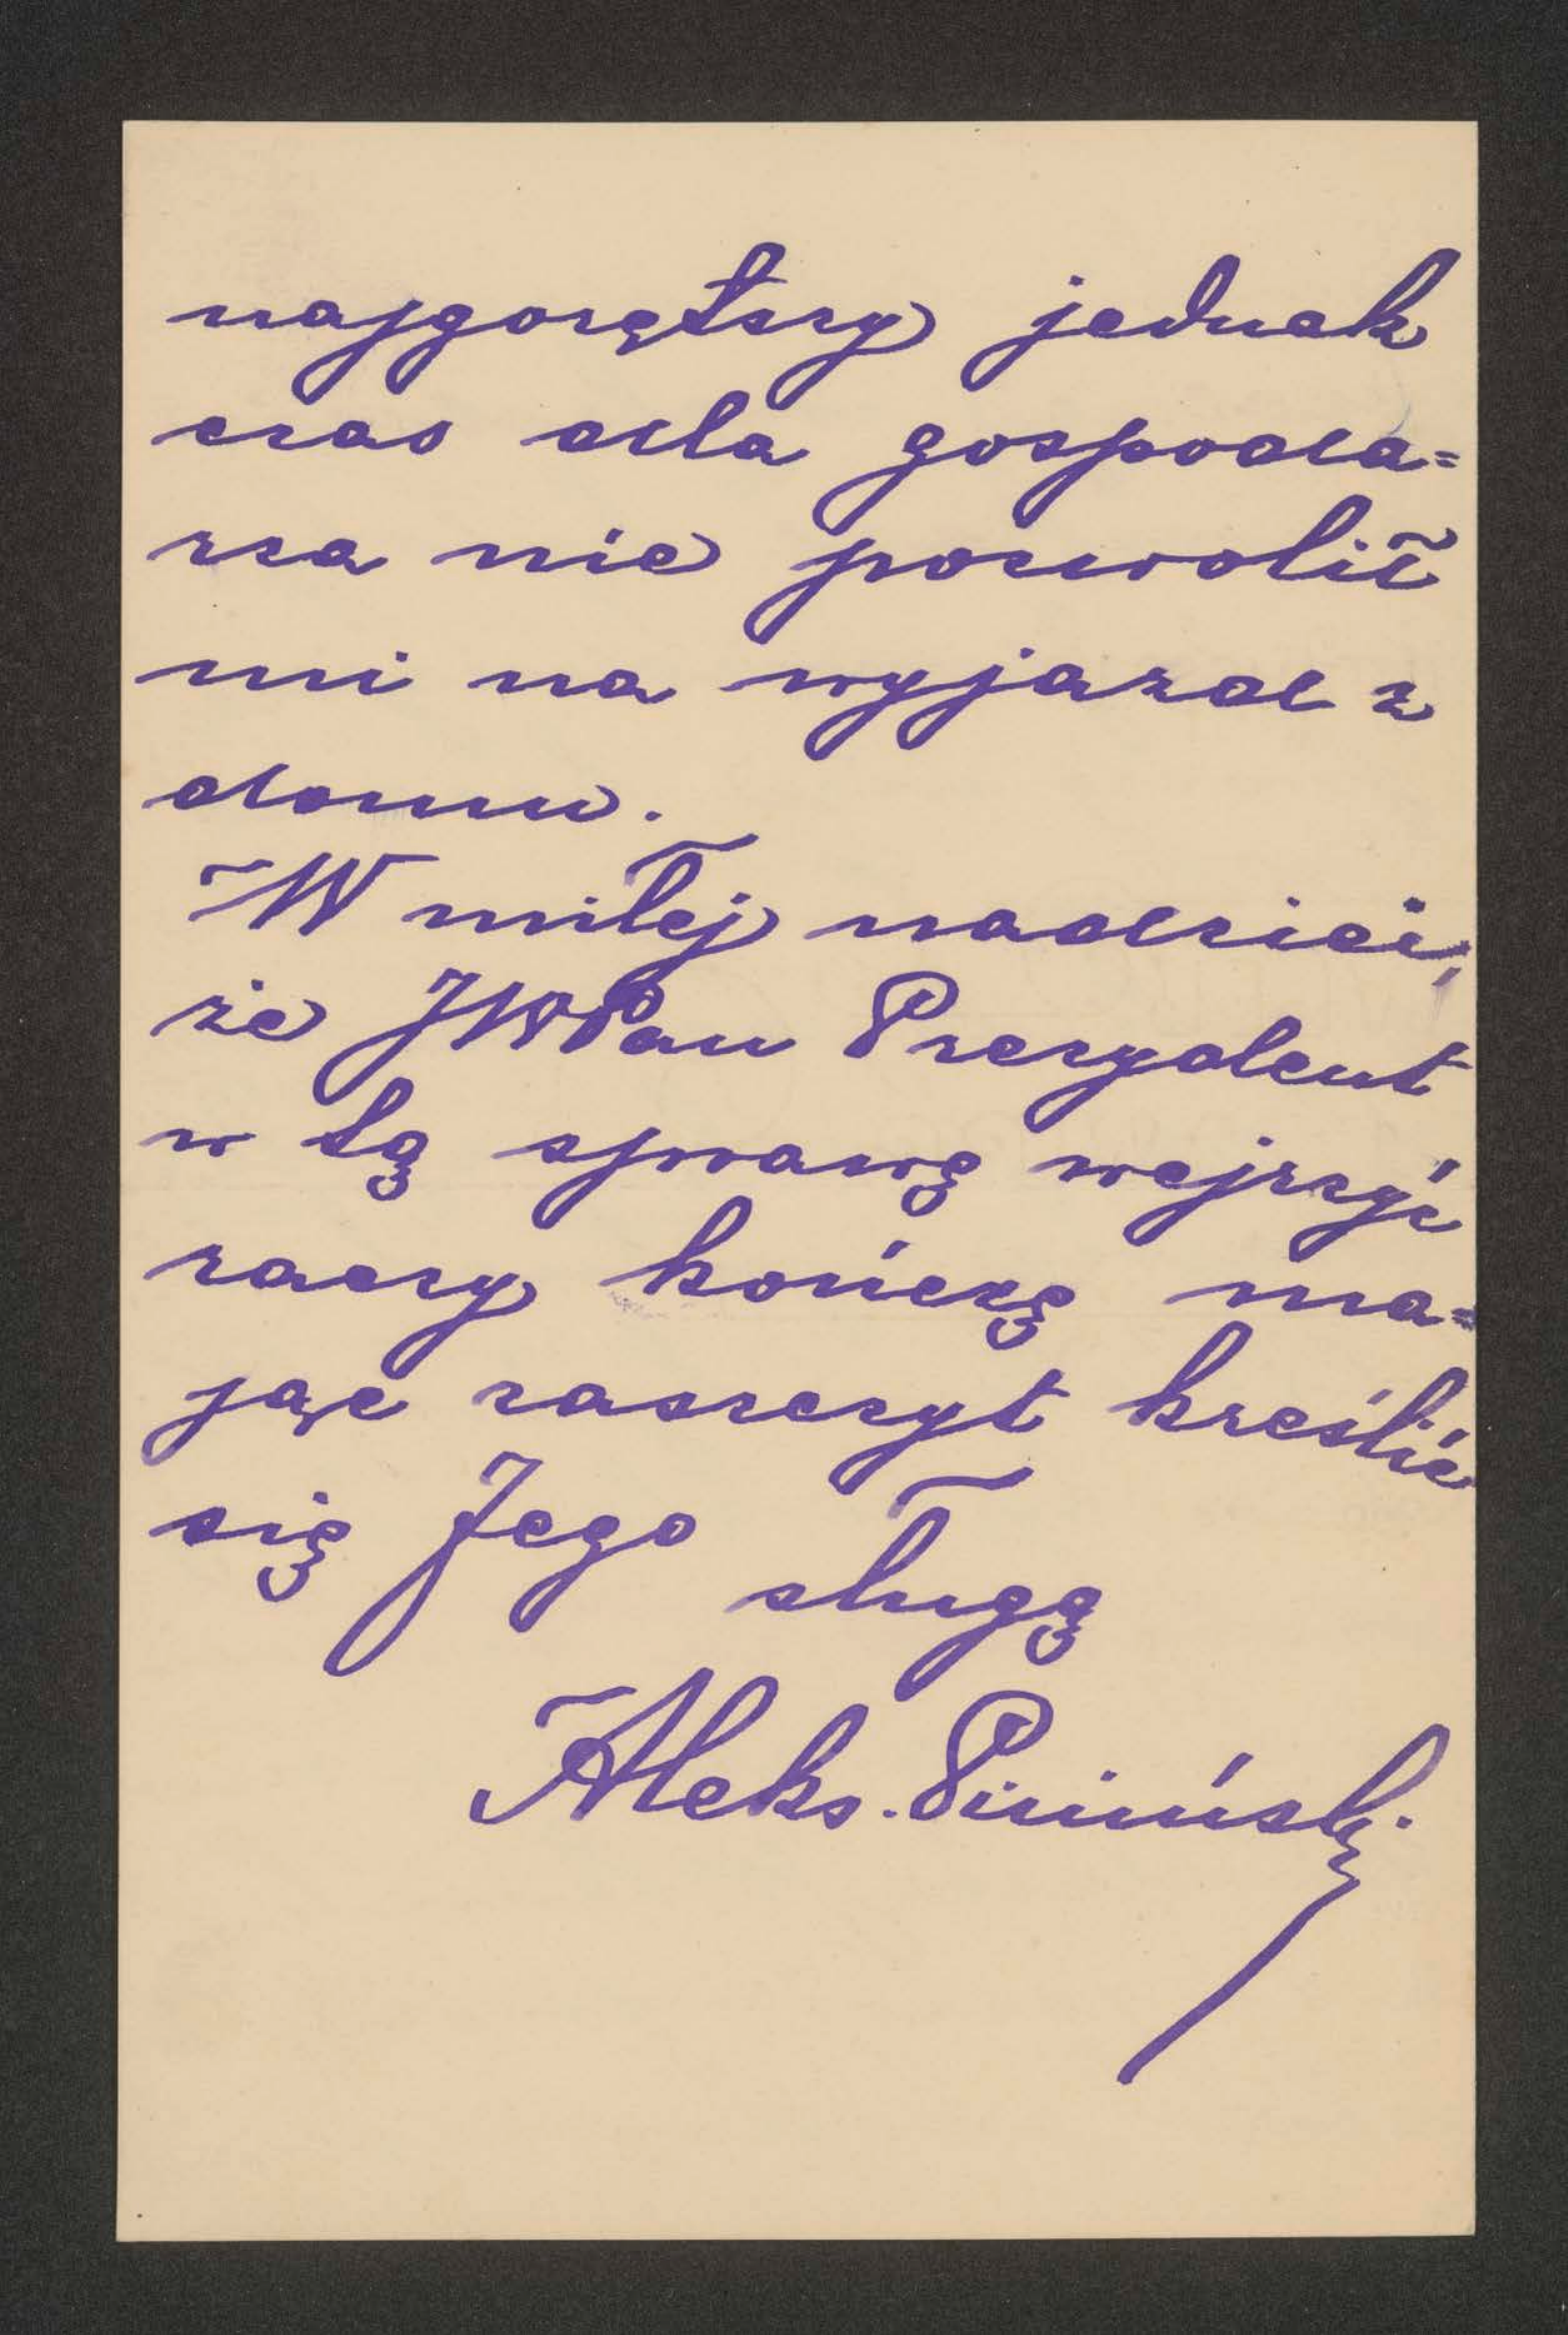 najgorętszy jednak
czas dla gospoda=
rza nie pozwolił
mi na wyjazd z
domu.
W miłej nadziei,
że JWPan Prezydent
w tę sprawę wejrzyć
raczy kończę ma=
jąc zaszczyt kreślić
się Jego sługą
Aleks.